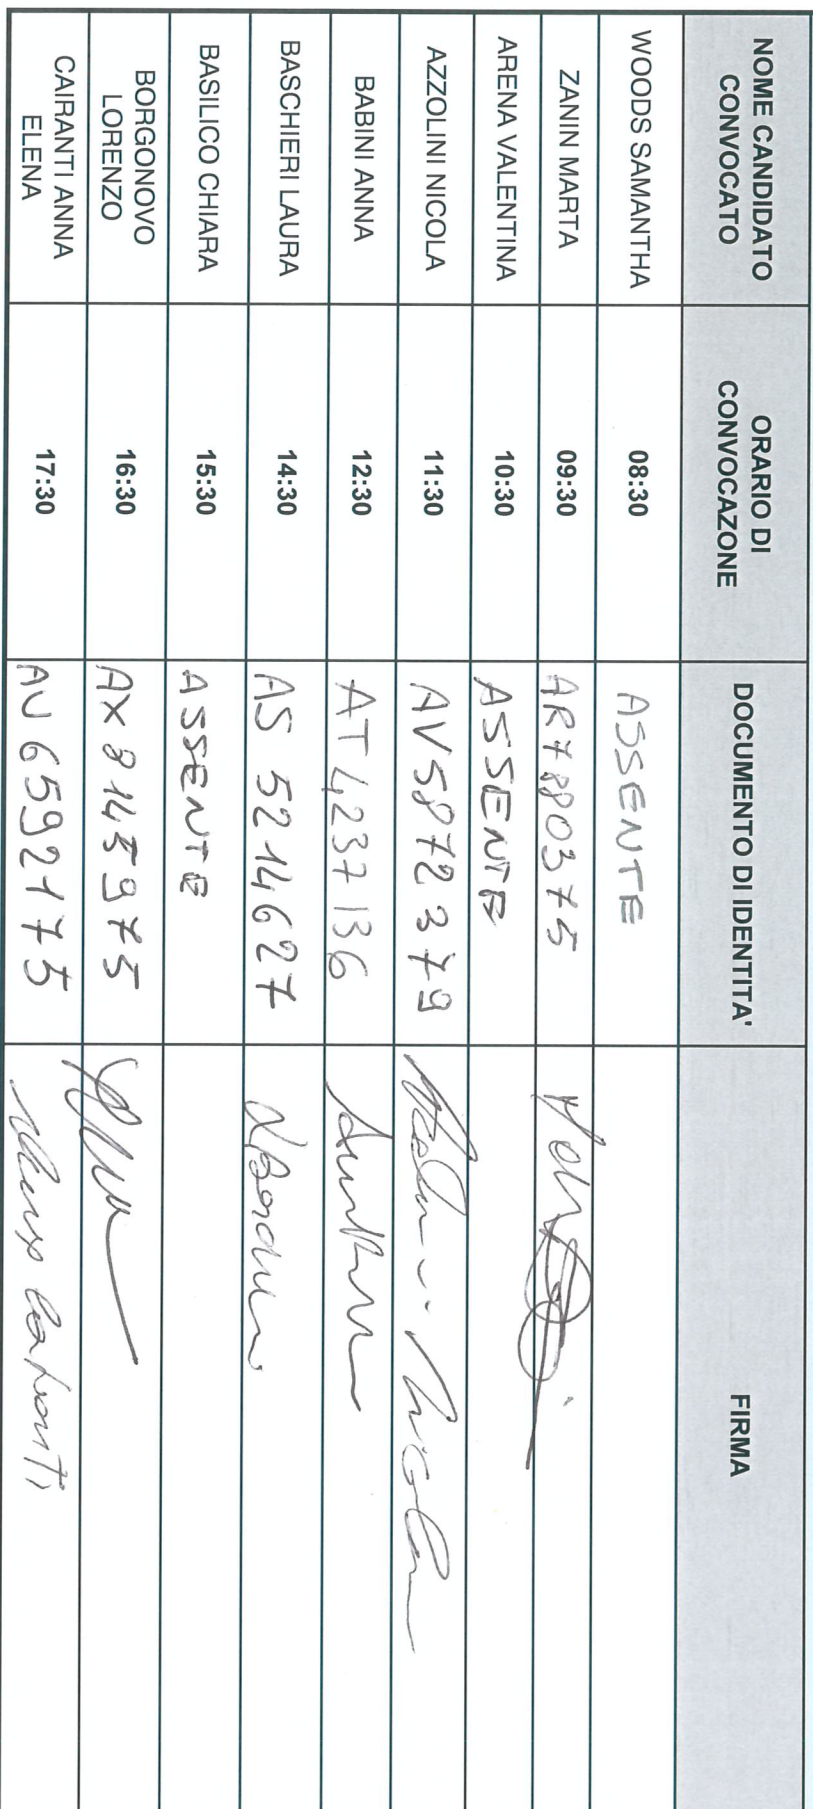 NOME CANDIDATO CONVOCATO ORARIO DI CONVOCAZONE DOCUMENTO DI IDENTITA' FIRMA
WOODS SAMANTHA 08:30 ASSENTE
ZANIN MARTA 09:30 AR7880375
ARENA VALENTINA 10:30 ASSENTE
AZZOLINI NICOLA 11:30 AV5872379 Nicola
BABINI ANNA 12:30 AT4237136
BASCHIERI LAURA 14:30 AS 5214627
BASILICO CHIARA 15:30 ASSENTE
BORGONOVO LORENZO 16:30 AX8145975
CAIRANTI ANNA ELENA 17:30 AU6592175